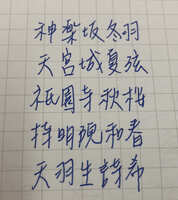 神楽坂冬羽
天宮城夏弦
祇園寺秋桜
持明現和春
天羽生詩希